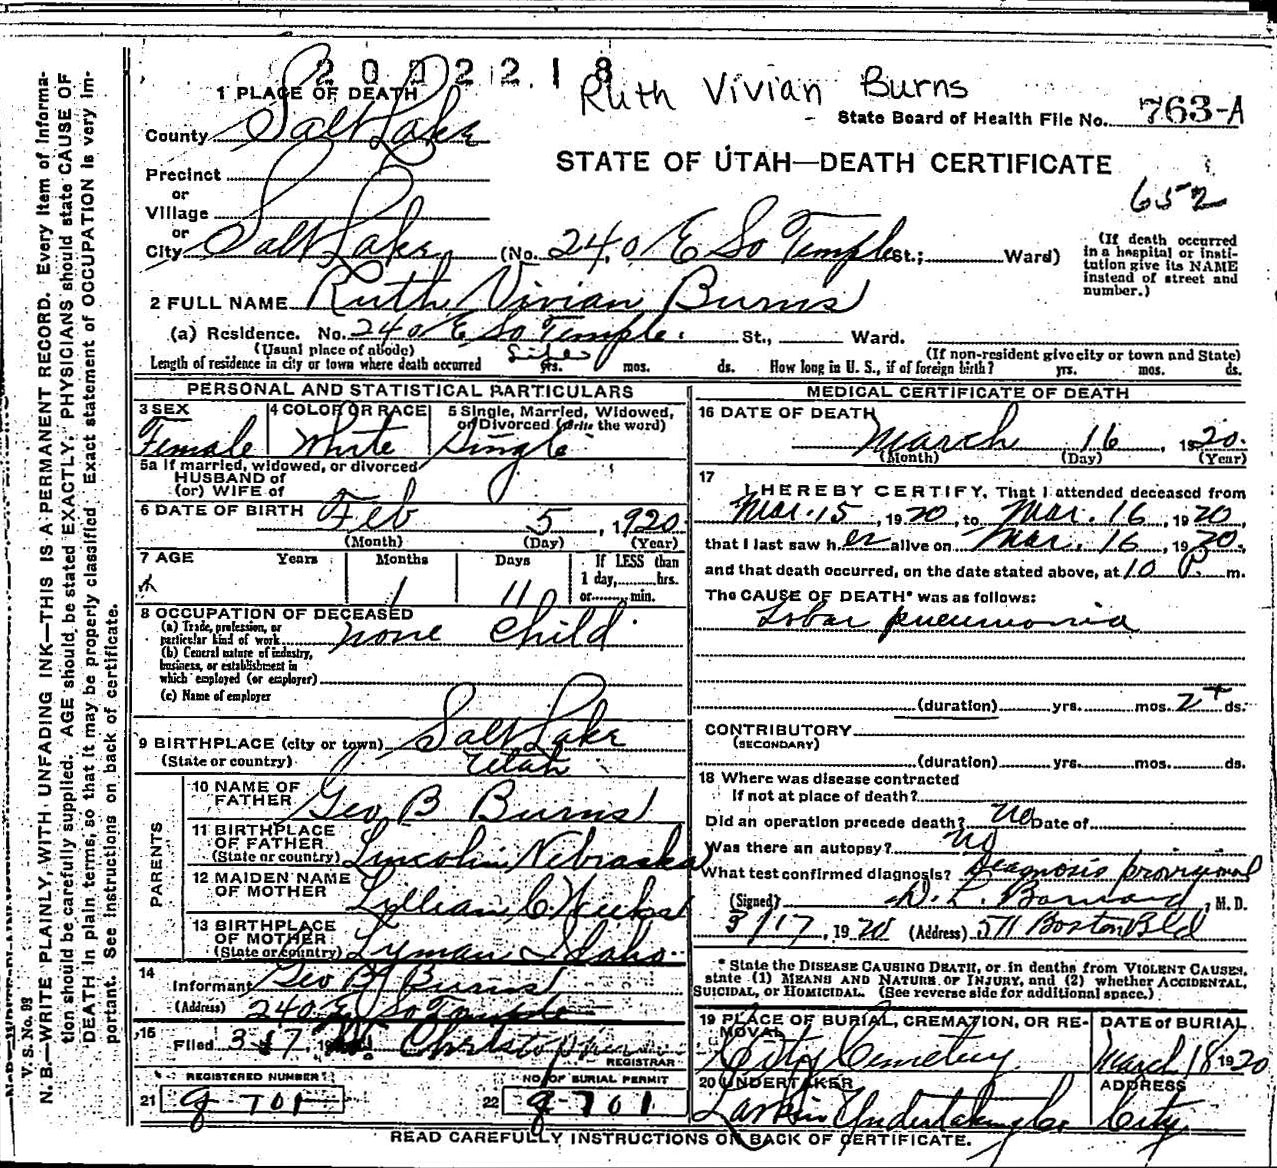 2002218
Ruth Vivian Burns
1 PLACE OF DEATH
State Board of Health File No. 763-A
County Salt Lake
STATE OF UTAH—DEATH CERTIFICATE
Precinct
or
652
Village
or
City Salt Lake (No. 240 E So Temple St.; Ward)
(If death occurred
in a hospital or insti-
tution give its NAME
instead of street and
number.)
2 FULL NAME Ruth Vivian Burns
(a) Residence. No. 240 E So Temple. St., Ward.
(Usual place of abode) (If non-resident give city or town and State)
Length of residence in city or town where death occurred Life yrs. mos. ds. How long in U. S., if of foreign birth? yrs. mos. ds.
PERSONAL AND STATISTICAL PARTICULARS
3 SEX
Female
4 COLOR OR RACE
White
5 Single, Married, Widowed,
or Divorced (write the word)
Single
5a If married, widowed, or divorced
HUSBAND of
(or) WIFE of
6 DATE OF BIRTH Feb 5, 1920
(Month) (Day) (Year)
7 AGE Years Months Days If LESS than
1 day, hrs.
1 11 or min.
8 OCCUPATION OF DECEASED
(a) Trade, profession, or
particular kind of work none child
(b) General nature of industry,
business, or establishment in
which employed (or employer)
(c) Name of employer
9 BIRTHPLACE (city or town) Salt Lake
(State or country) Utah
PARENTS
10 NAME OF
FATHER Geo B Burns
11 BIRTHPLACE
OF FATHER
(State or country) Lincoln Nebraska
12 MAIDEN NAME
OF MOTHER Lillian C.
13 BIRTHPLACE
OF MOTHER
(State or country) Lyman Idaho.
14
Informant Geo B Burns
(Address) 240 E So Temple
15
Filed 3-17, 19
REGISTRAR
REGISTERED NUMBER NO. OF BURIAL PERMIT
21 22
MEDICAL CERTIFICATE OF DEATH
16 DATE OF DEATH
March 16, 1920.
(Month) (Day) (Year)
17
I HEREBY CERTIFY, That I attended deceased from
Mar. 15, 1920, to Mar. 16, 1920,
that I last saw her alive on Mar. 16, 1920,
and that death occurred, on the date stated above, at 10 P. m.
The CAUSE OF DEATH* was as follows:
Lobar pneumonia
(duration) yrs. mos. 2+ ds.
CONTRIBUTORY
(SECONDARY)
(duration) yrs. mos. ds.
18 Where was disease contracted
If not at place of death?
Did an operation precede death? No Date of
Was there an autopsy? No
What test confirmed diagnosis? Diagnosis provisional
(Signed) D. L. Barnard, M. D.
3/17, 1920 (Address) 511 Boston Bld
* State the DISEASE CAUSING DEATH, or in deaths from VIOLENT CAUSES,
state (1) MEANS AND NATURE OF INJURY, and (2) whether ACCIDENTAL,
SUICIDAL, or HOMICIDAL. (See reverse side for additional space.)
19 PLACE OF BURIAL, CREMATION, OR RE-
MOVAL
City Cemetery
DATE of BURIAL
March 18 1920
20 UNDERTAKER
Larkin Undertaking Co.
ADDRESS
City
READ CAREFULLY INSTRUCTIONS ON BACK OF CERTIFICATE.
V. S. No. 99
N. B.—WRITE PLAINLY, WITH UNFADING INK—THIS IS A PERMANENT RECORD. Every item of informa-
tion should be carefully supplied. AGE should be stated EXACTLY. PHYSICIANS should state CAUSE OF
DEATH in plain terms, so that it may be properly classified. Exact statement of OCCUPATION is very im-
portant. See instructions on back of certificate.